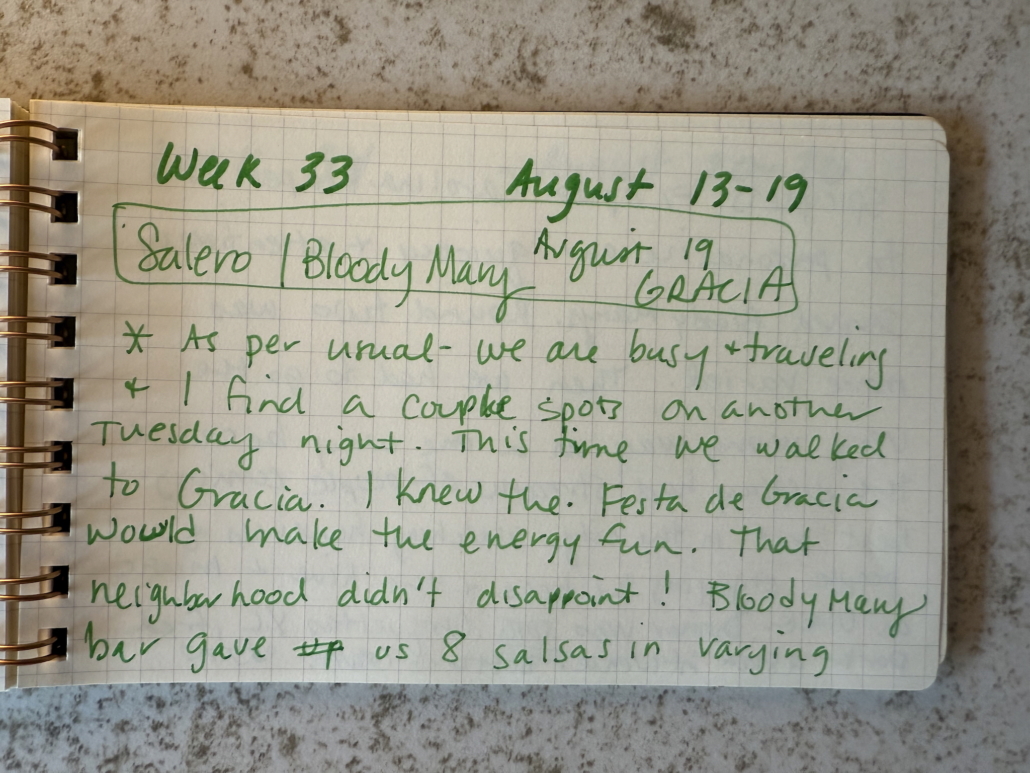 Week 33 August 13-19
Salero | Bloody Mary August 19
GRACIA
* As per usual- we are busy + traveling
+ I find a couple spots on another
Tuesday night. This time we walked
to Gracia. I knew the. Festa de Gracia
would make the energy fun. That
neighborhood didn't disappoint! Bloody Mary
bar gave us 8 salsas in varying